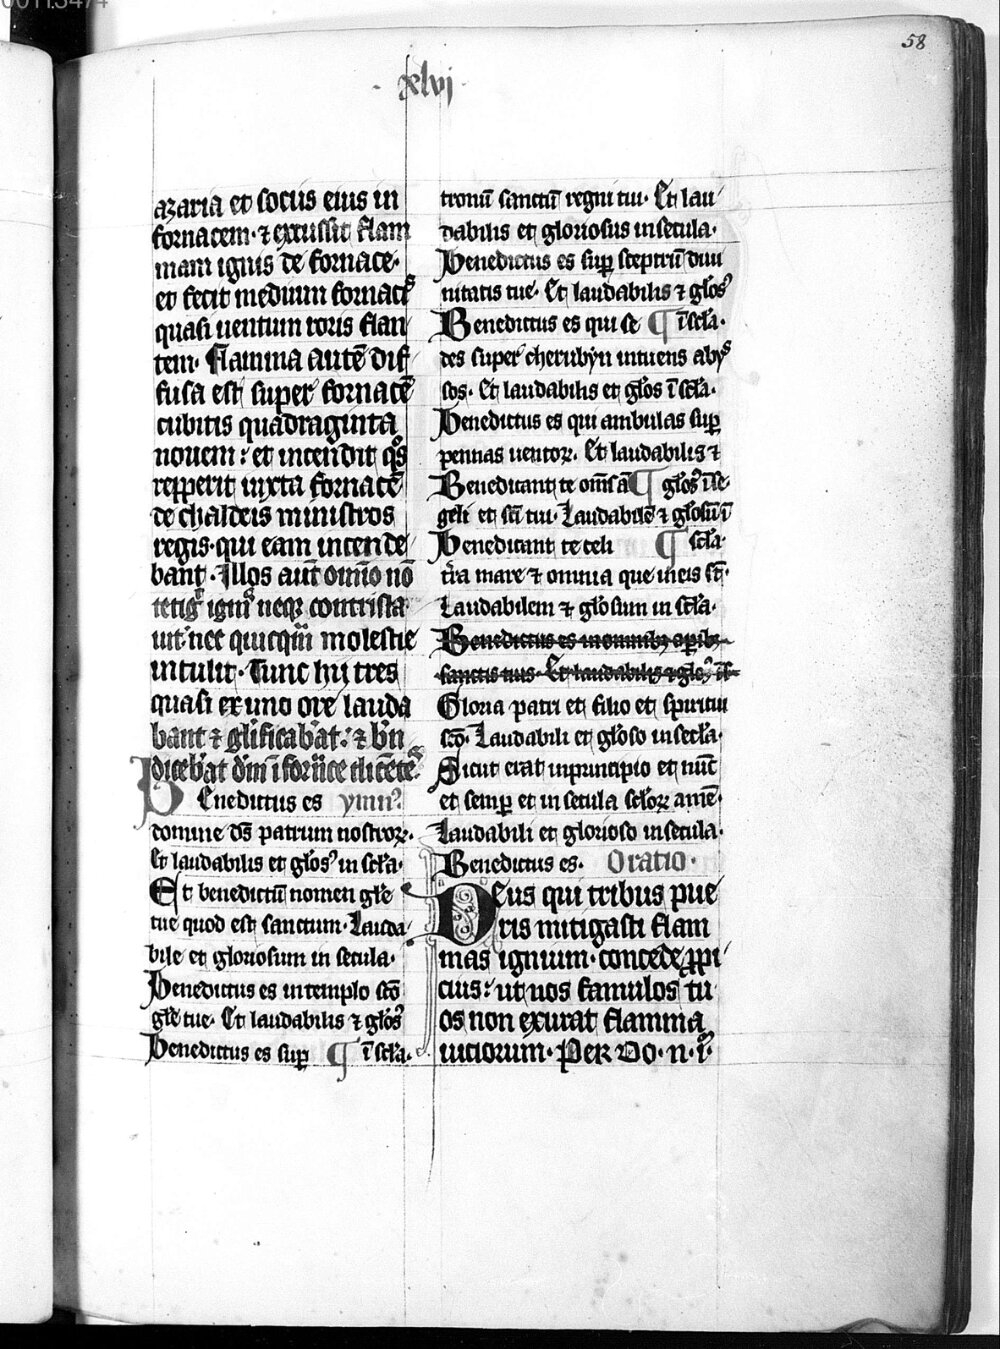 58
xlvj
azaria et socus eius in
fornacem · ⁊ excussit flam
mam ignis de fornace ·
et fecit medium fornac
quasi uentum roris flan
tem · Flamma autē dif
fusa est super fornacē
cubitis quadraginta
nouem : et incendit qͦs
repperit iuxta fornacē
de chaldeis ministros
regis · qui eam incende
bant · Illos aut̄ omīo nō
tetigͭ ignis neqꝫ contrista
uit nec quicq̄m molestie
intulit · Tunc hij tres
quasi ex uno ore lauda
bant ⁊ gl̓ificab̓at : ⁊ b̓n
diceb̓at dm̄ ī fornace dicētes
Benedictus es ymn᷒
domine ds̄ patrum nostroꝝ ·
Et laudabilis et gl̓os᷒ in sc̓la ·
Et benedictū nomen gl̓e
tue quod est sanctum · Lauda
bile et gloriosum in secula ·
Benedictus es in templo sc̄o
gl̓e tue · Et laudabilis ⁊ gl̓os᷒
Benedictus es suꝑ ¶ ī sc̓la ·
tronū sanctū regni tui · Et lau
dabilis et gloriosus in secula ·
Benedictus es suꝑ sceptrū diui
nitatis tue · Et laudabilis ⁊ gl̓os᷒
Benedictus es qui se ¶ ī sc̓la ·
des super cherubyn intuens abys
sos · Et laudabilis et gl̓os ī sc̓la ·
Benedictus es qui ambulas suꝑ
pennas uentoꝝ · Et laudabilis ⁊
Benedicant te om̄s ā ¶ gl̓os᷒ ī se
geli et sc̄i tui · Laudabilē ⁊ gl̓osū ī
Benedicant te celi ¶ sc̓la ·
tr̄a mare ⁊ omnia que in eis st̄ ·
Laudabilem ⁊ gl̓osum in sc̓la ·
Benedictus es in omnibꝫ operibꝫ
sanctis tuis · Et laudabilis ⁊ gl̓os᷒ ī s̄
Gloria patri et filio et spiritui
sc̄o · Laudabili et gl̓oso in sec̓la ·
Sicut erat in principio et nūc
et semꝑ et in secula sc̓loꝝ amē ·
Laudabili et glorioso in secula ·
Benedictus es · Oratio ·
Deus qui tribus pue
ris mitigasti flam
mas ignium · concede ꝓpi
cius : ut nos famulos tu
os non exurat flamma
uiciorum · Per do · n · i ·